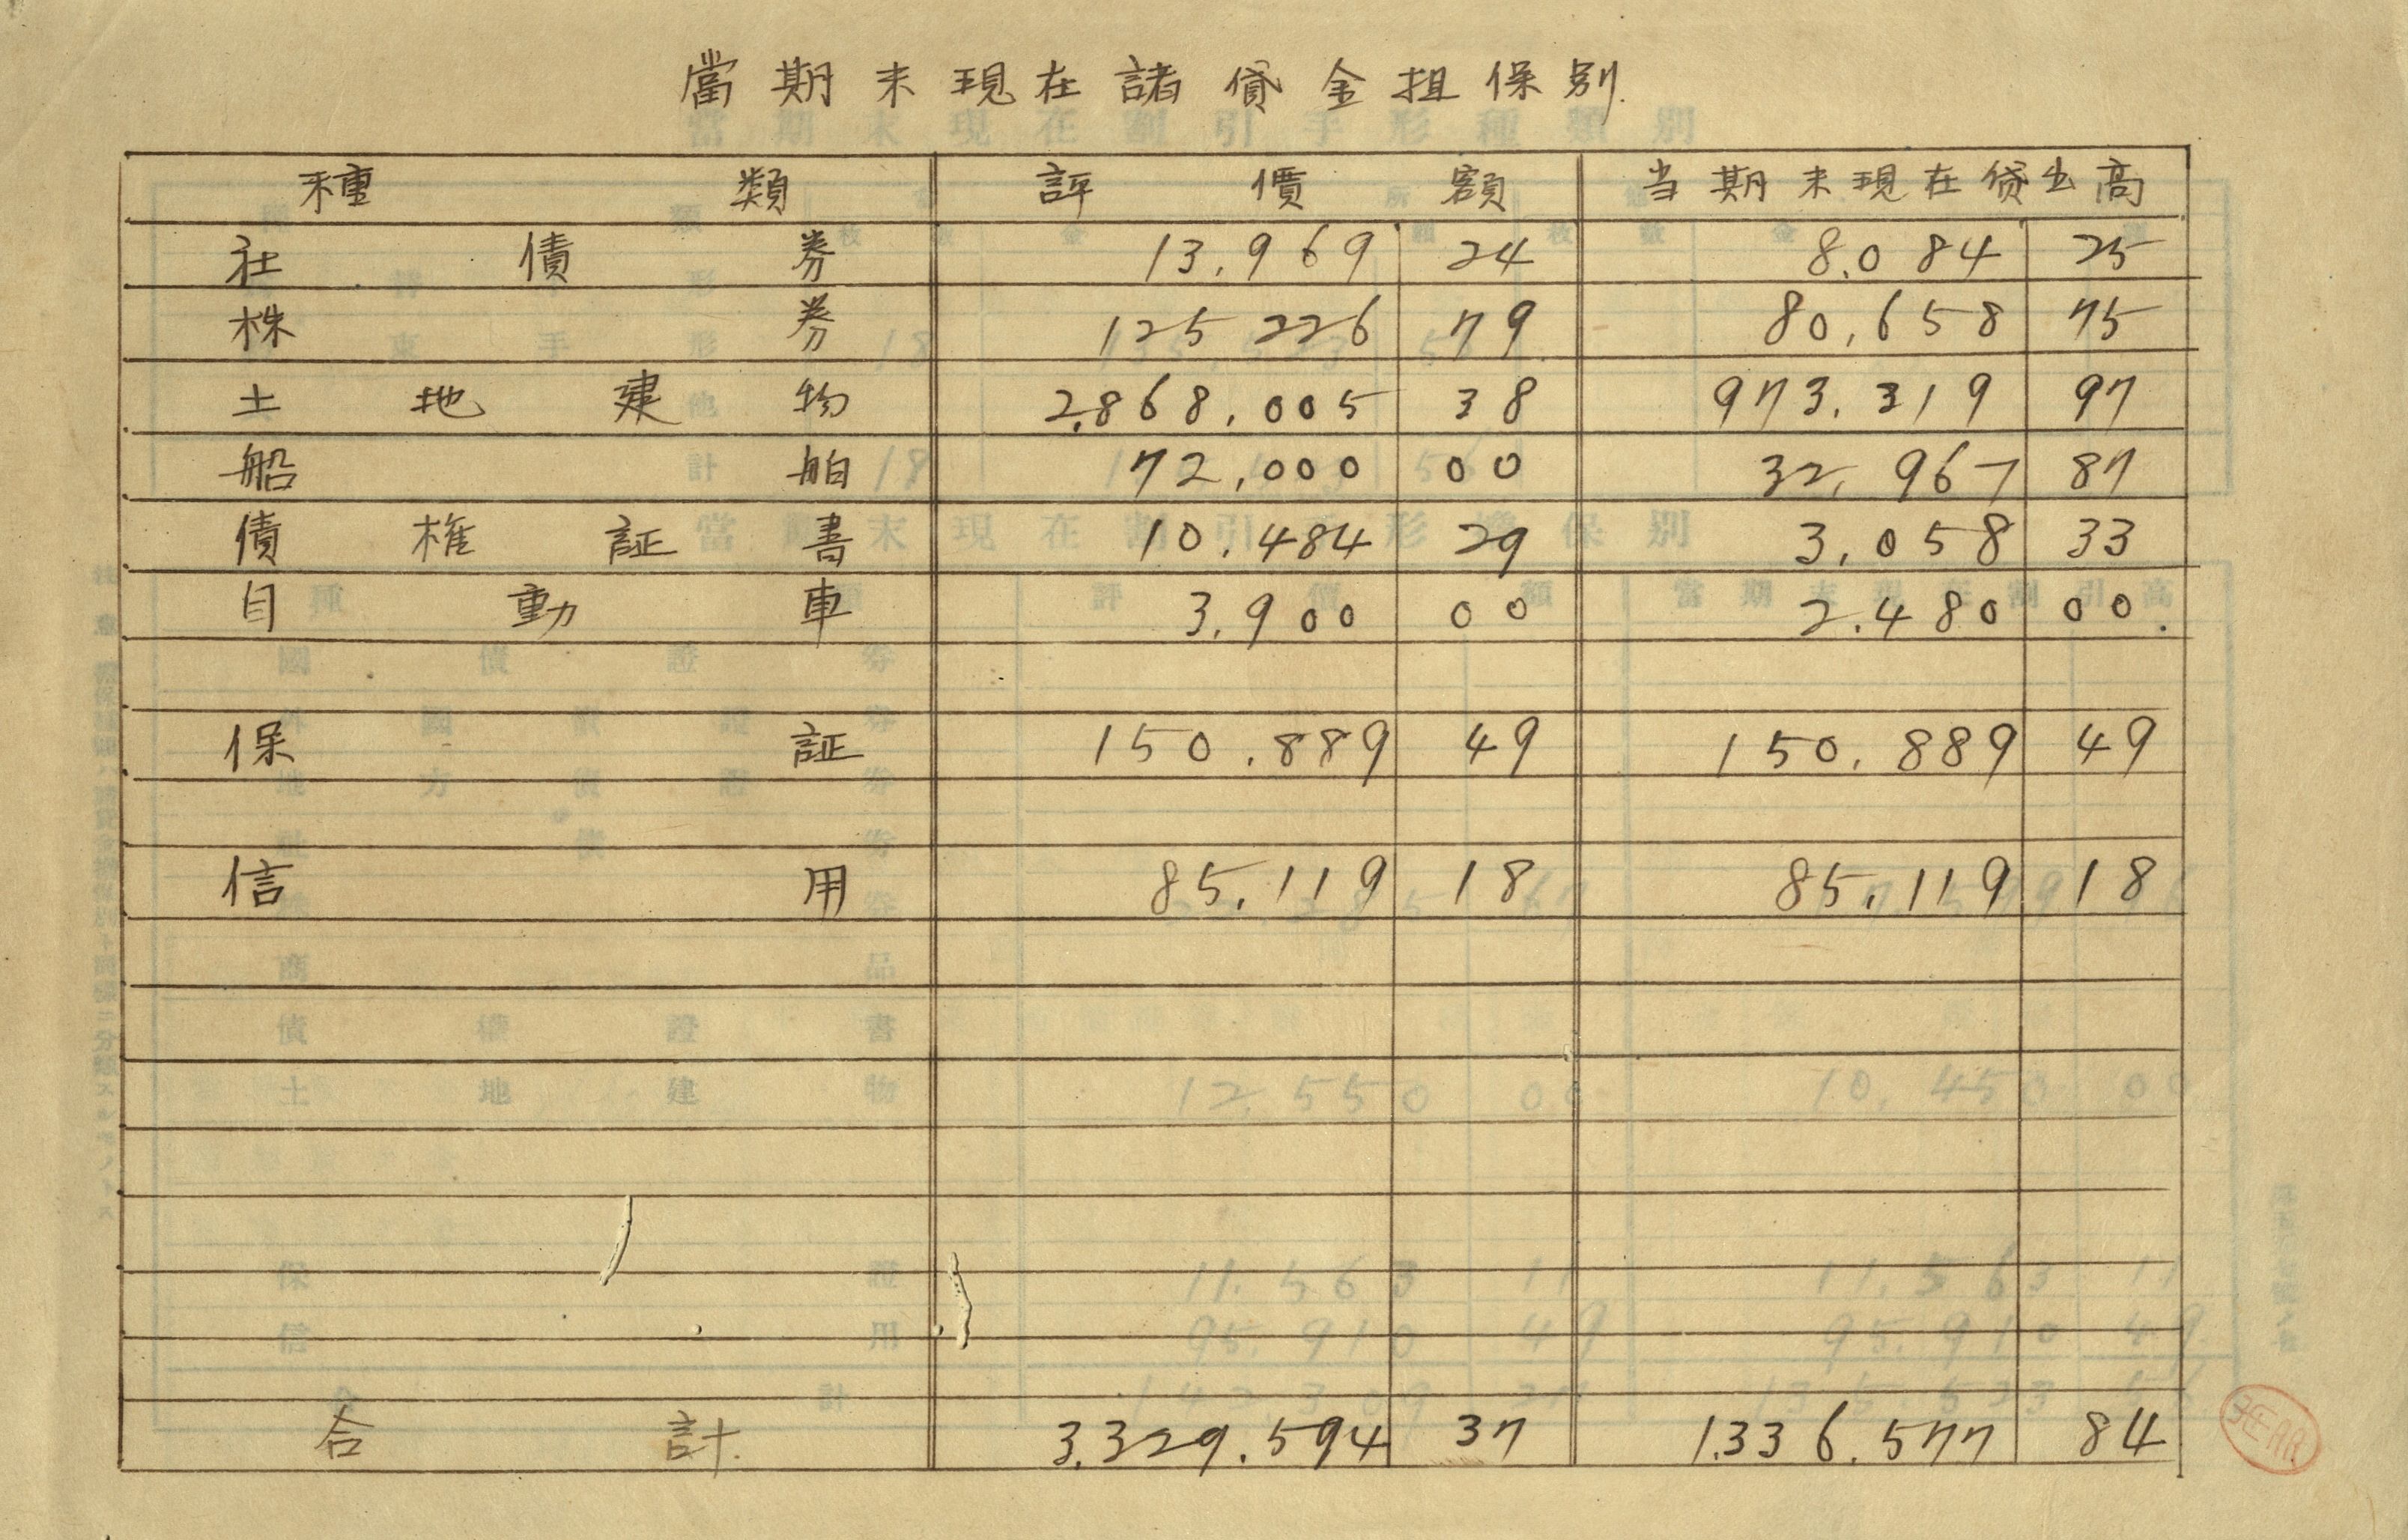 當期末現在諸貸金担保別
種類 評價額 当期末現在貸出高
社債券 13,969 24 8,084 25
株券 125 226 79 80,658 75
土地建物 2,868,005 38 973,319 97
船舶 72,000 00 32,967 87
債権証書 10,484 29 3,058 33
自動車 3,900 00 2,480 00
保証 150,889 49 150,889 49
信用 85,119 18 85,119 18
合計 3,329,594 37 1,336,577 84